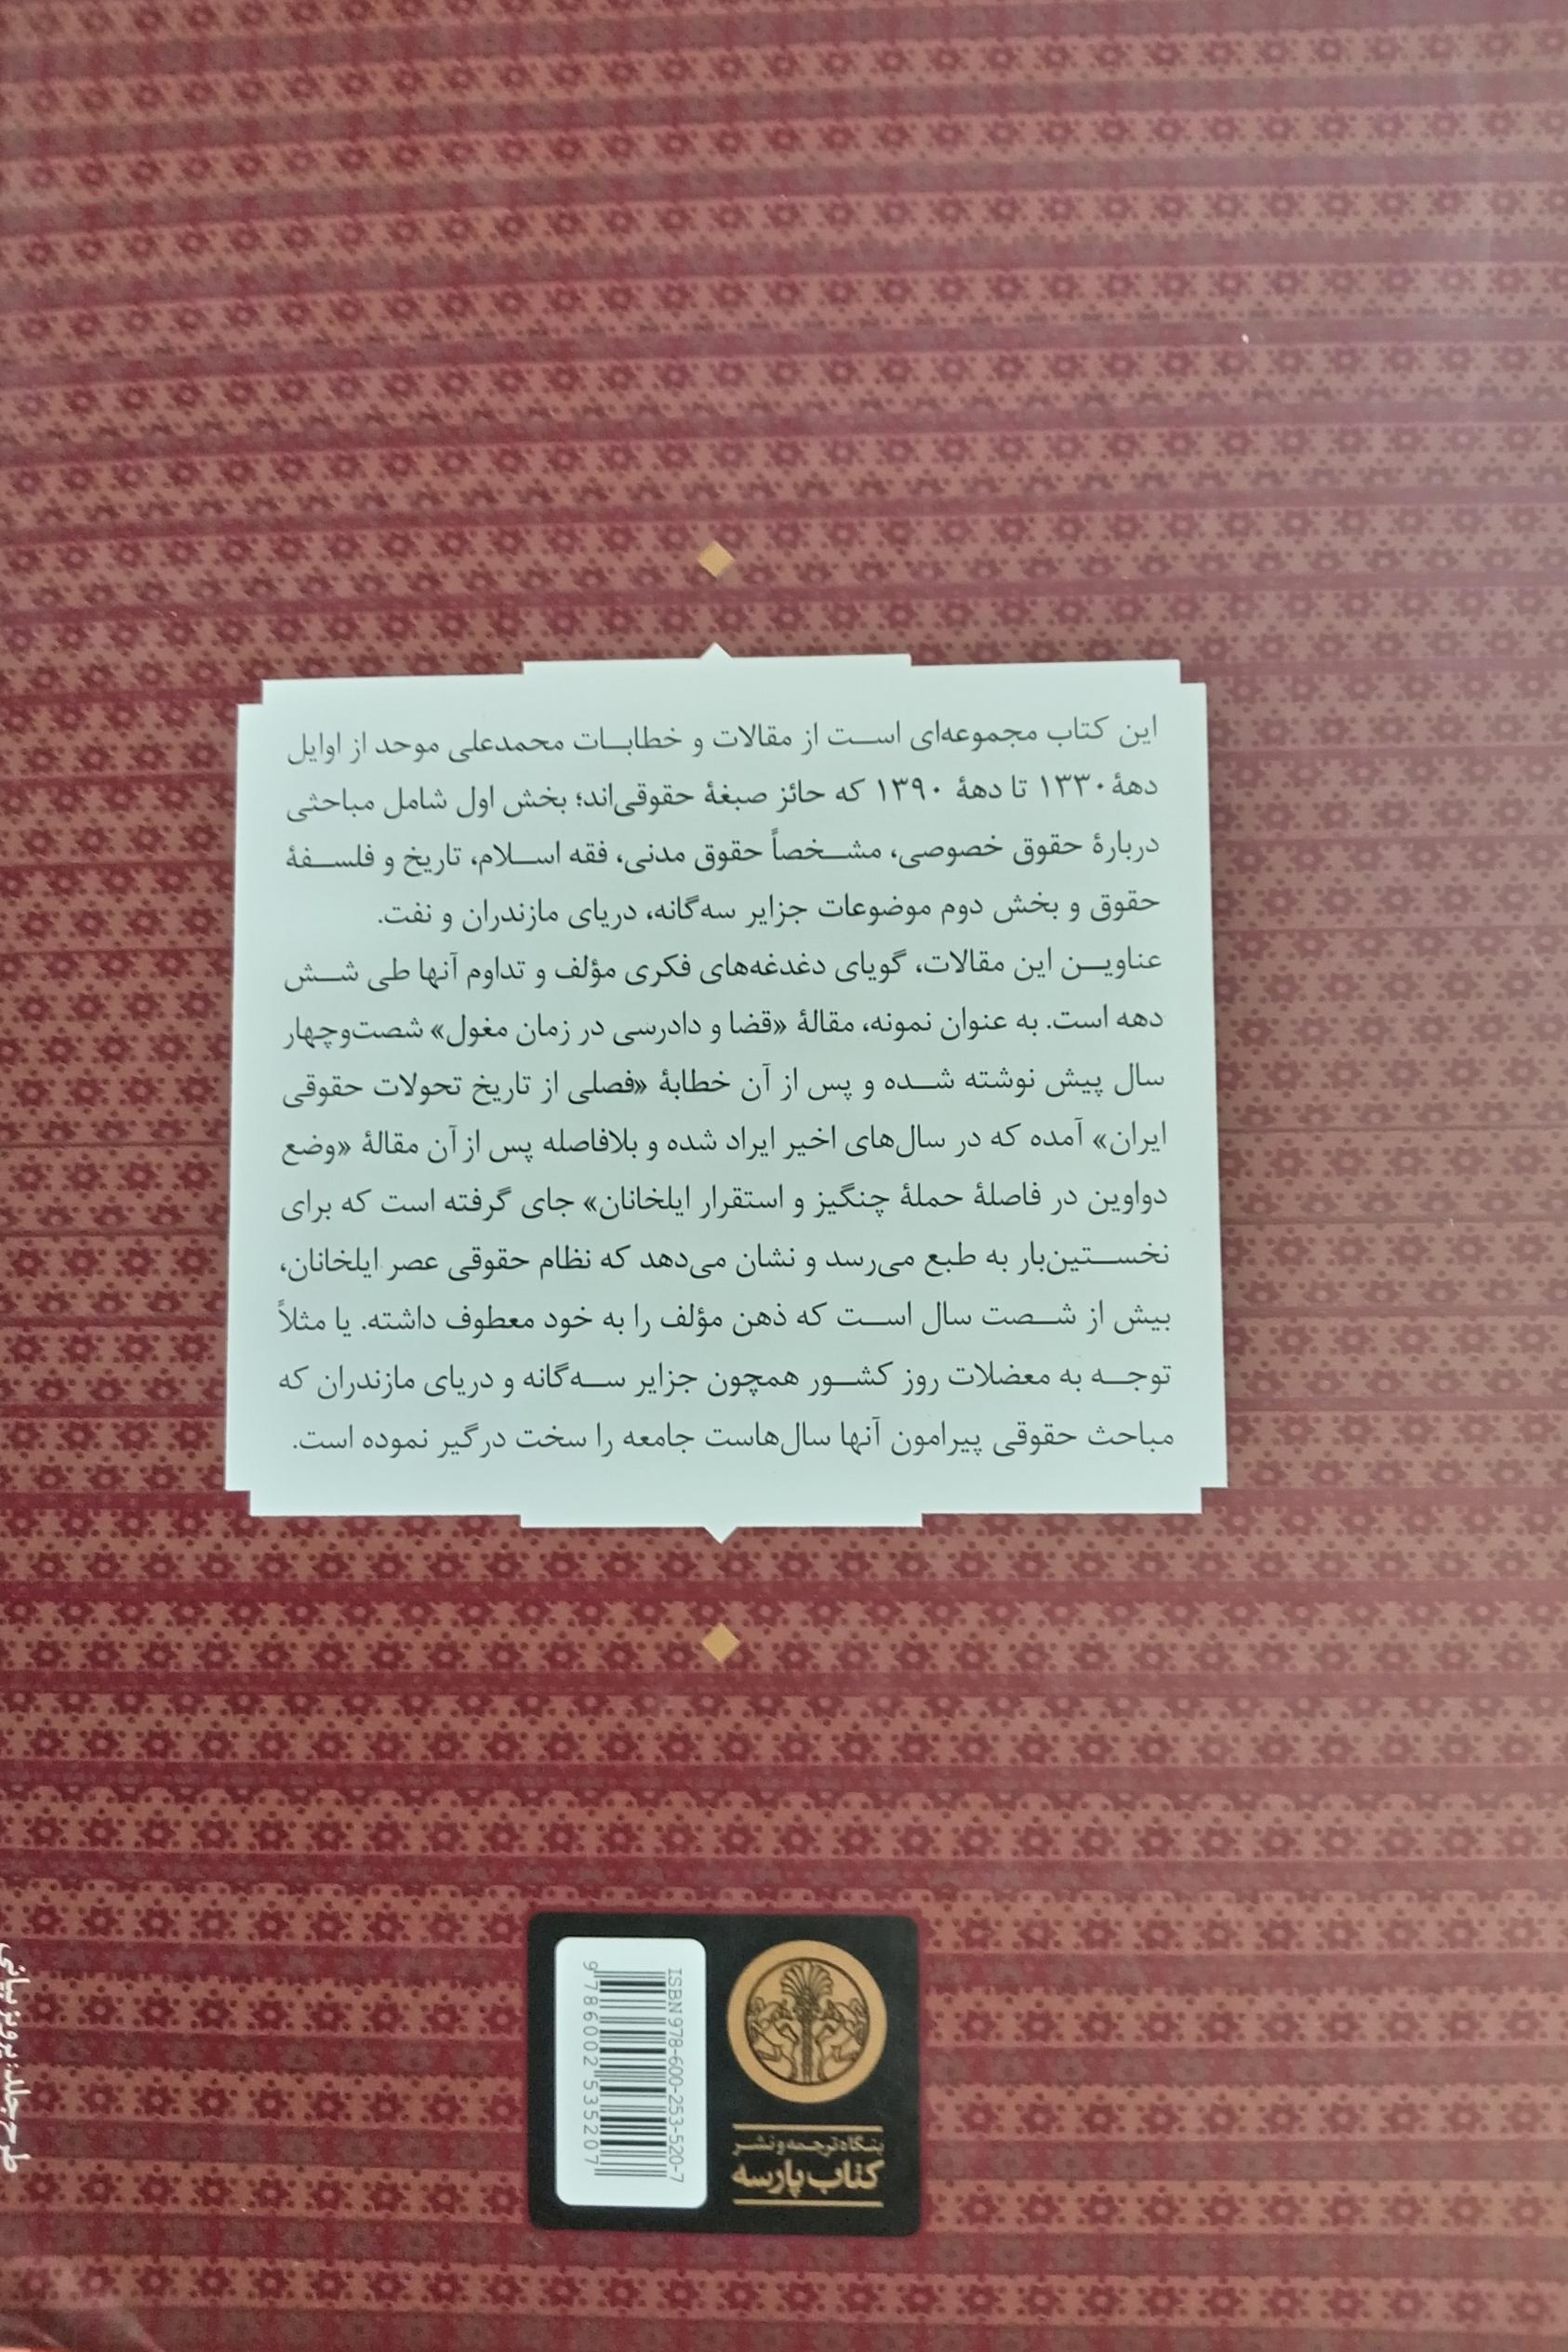 این کتاب مجموعه‌ای است از مقالات و خطابات محمدعلی موحد از اوایل
دههٔ ۱۳۳۰ تا دههٔ ۱۳۹۰ که حائز صبغهٔ حقوقی‌اند؛ بخش اول شامل مباحثی
دربارهٔ حقوق خصوصی، مشخصاً حقوق مدنی، فقه اسلام، تاریخ و فلسفهٔ
حقوق و بخش دوم موضوعات جزایر سه‌گانه، دریای مازندران و نفت.
عناوین این مقالات، گویای دغدغه‌های فکری مؤلف و تداوم آنها طی شش
دهه است. به عنوان نمونه، مقالهٔ «قضا و دادرسی در زمان مغول» شصت‌وچهار
سال پیش نوشته شده و پس از آن خطابهٔ «فصلی از تاریخ تحولات حقوقی
ایران» آمده که در سال‌های اخیر ایراد شده و بلافاصله پس از آن مقالهٔ «وضع
دواوین در فاصلهٔ حملهٔ چنگیز و استقرار ایلخانان» جای گرفته است که برای
نخستین‌بار به طبع می‌رسد و نشان می‌دهد که نظام حقوقی عصر ایلخانان،
بیش از شصت سال است که ذهن مؤلف را به خود معطوف داشته. یا مثلاً
توجه به معضلات روز کشور همچون جزایر سه‌گانه و دریای مازندران که
مباحث حقوقی پیرامون آنها سال‌هاست جامعه را سخت درگیر نموده است.
بنگاه ترجمه و نشر
کتاب پارسه
ISBN 978-600-253-520-7
9 786002 535207
طرح جلد: پرویز بیانی